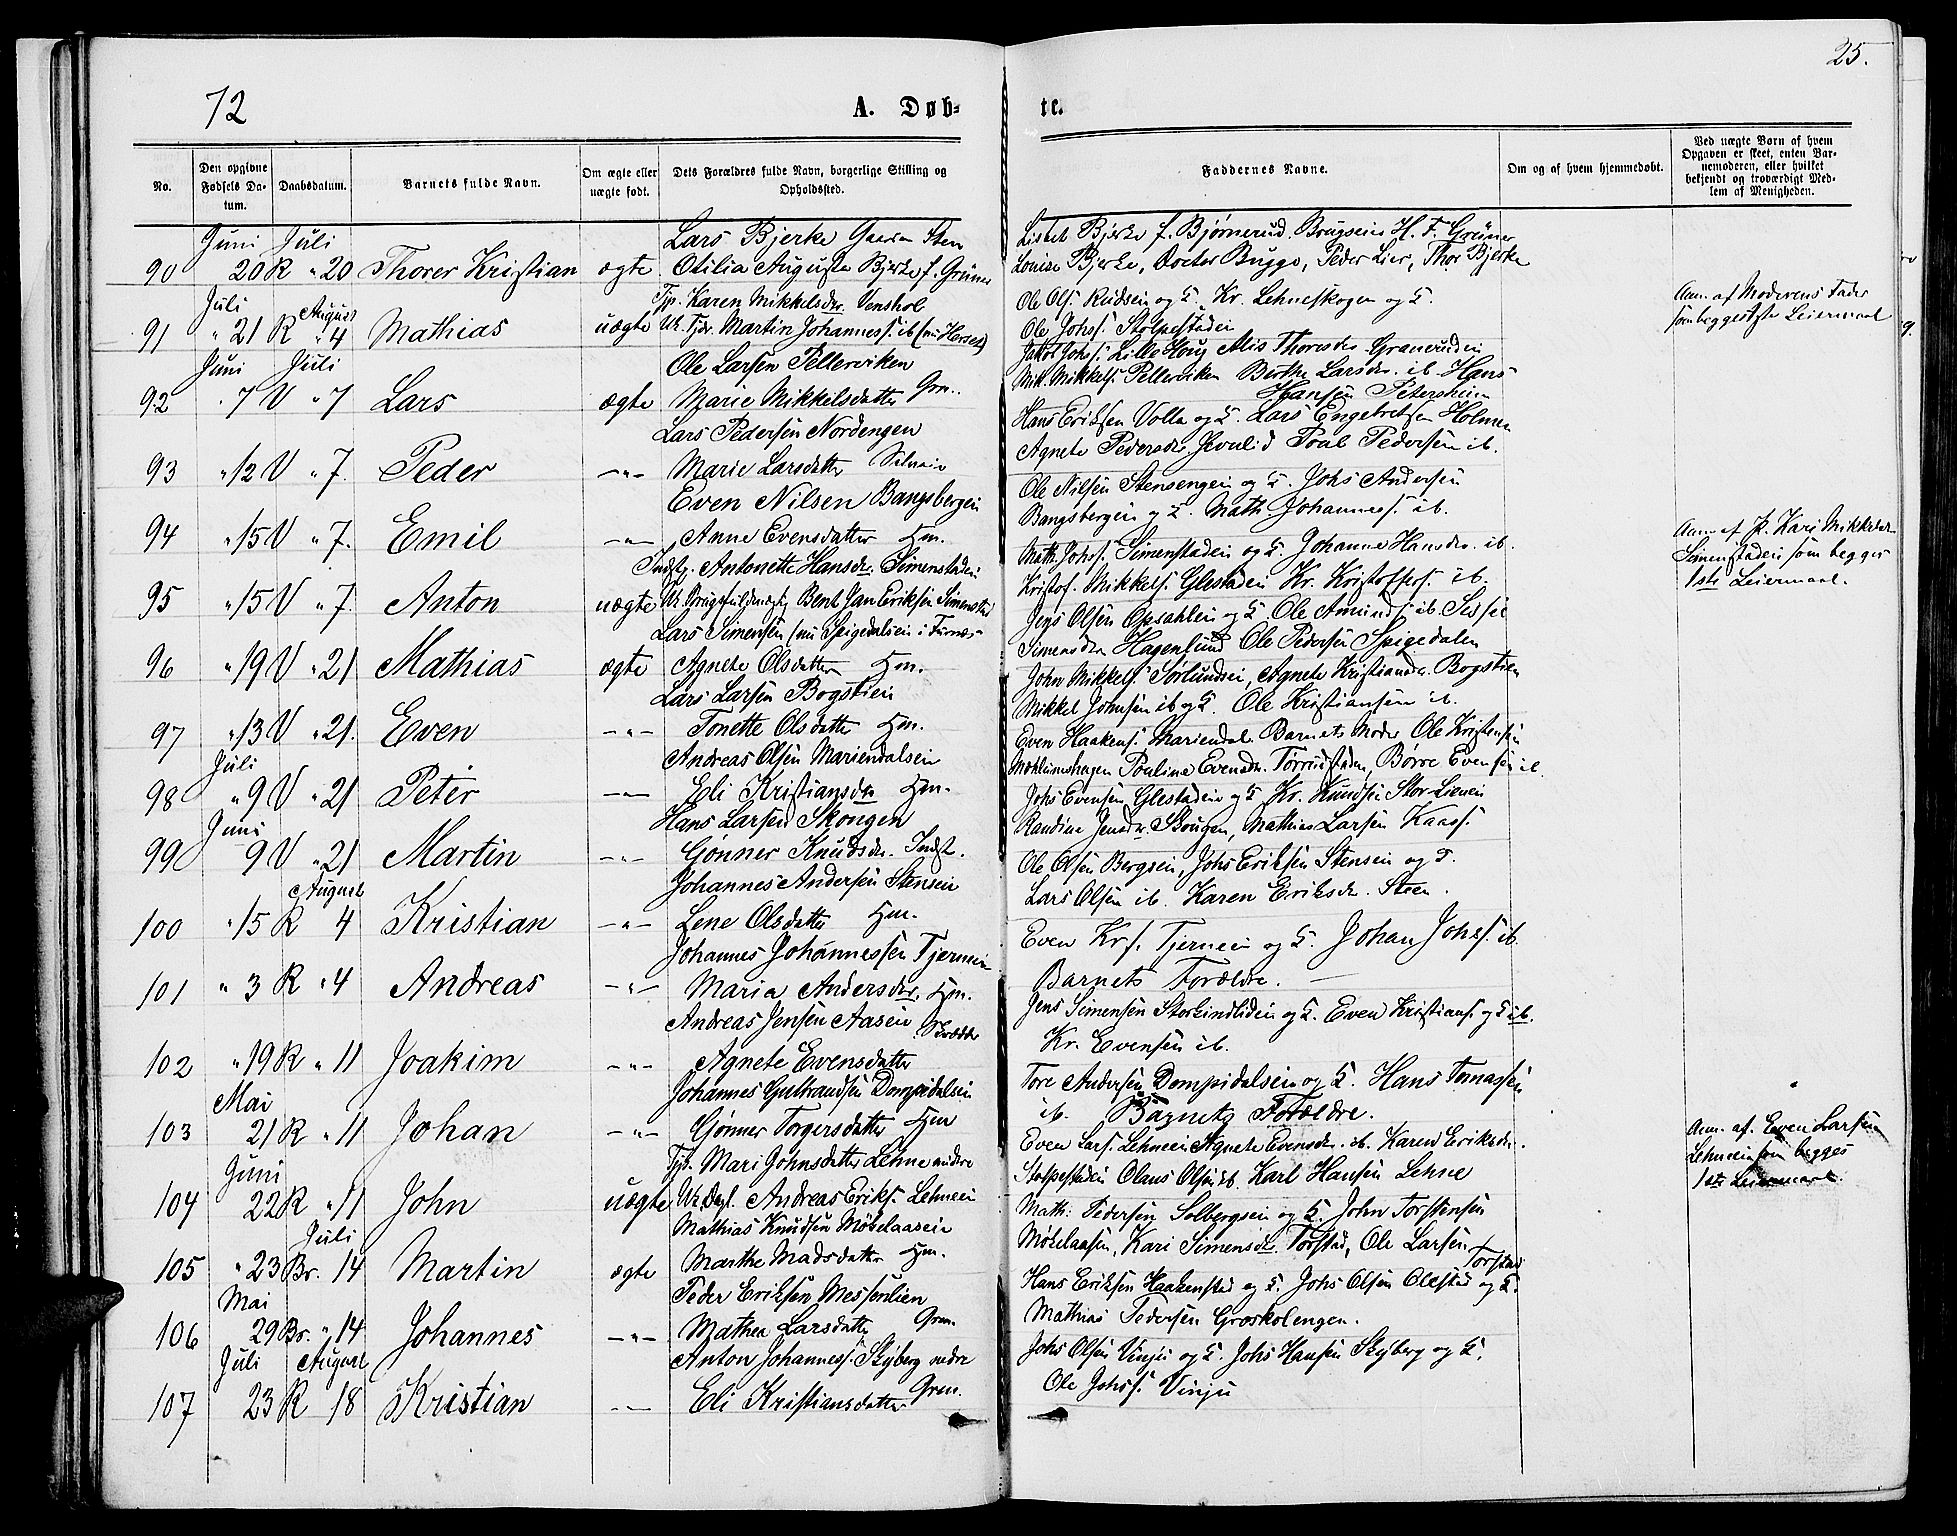 25.
72
A. Døb-
te.
No.
Den opgivne Fødsels Datum.
Daabsdatum.
Barnets fulde Navn.
Om ægte eller uægte født.
Dets Forældres fulde Navn, borgerlige Stilling og Opholdssted.
Faddernes Navne.
Om og af hvem hjemmedøbt.
Ved uægte Børn af hvem Opgaven er skeet, enten Barnemoderen, eller hvilket bekjendt og troværdigt Medlem af Menigheden.
Juni Juli Lars Bjerke Gaarden Sten
90 20 R " 20 Thorer Kristian ægte Otilia Augusta Bjerke f. Grüner
Lisbet Bjerke f. Bjørnerud. H. F. Grüner
Louise Bjerke, Doctor Bugge, Peder Lier, Thor Bjerke
Juli August Tjp. Karen Mikkelsdr. Venshol
91 " 21 R " 4 Mathias uægte Uk. Tjdr. Martin Johanness. ib
Ole Ols. Rudsein og K. Kr. Lehneskogen og K.
Ole Johss. Stolpestadein
Anm. af Moderens Fader
som begges 1ste Leiermaal
Juni Juli Ole Larsen Pellerviken
92 " 7 V " 7 Lars ægte Marie Mikkelsdatter Grn.
Jakob Johs. Lille Houg Alis Thoresdr. Granerudein
Mik. Mikkels. Pellerviken Berthe Larsdr. ib. Hans
Hansen Petersheim
Lars Pedersen Nordengen
93 " 12 V " 7. Peder — " — Marie Larsdatter
Hans Eriksen Volla og K. Lars Engebretsen Holmen
Agnete Pedersdr. Poul Pedersen ib.
Even Nilsen Bangsbergein
94 " 15 V " 7. Emil — " — Anne Evensdatter Hm.
Ole Nilsen Stensengein og K. Johs Andersen
Bangsbergein og K. Math. Johanness. ib.
Indstg. Antonette Hansdr. Simenstadein
95 " 15 V " 7. Anton uægte Uk. Bent Jan Eriksen Simenstad
Math. Johs. Simenstadein og K. Johanne Hansdr. ib.
Kristof. Mikkels. Glestadein Kr. Kristoffers. ib.
Anm. af Kari Mikkelsdr
Simenstadein som begges
1ste Leiermaal.
Lars Simensen (nu Spigedalsein i Furnæs
96 " 19 V " 21 Mathias ægte Agnete Olsdatter Hm.
Jens Olsen Opsahlein og K. Ole Amunds. ib. Sissel
Simensdr. Hagenlund Ole Pedersen Spigedalen
Lars Larsen Bogstiein
97 " 13 V " 21. Even — " — Tonette Olsdatter Hm.
John Mikkels. Sørlundsein, Agnete Kristiansdr. Bogstien
Mikkel Johnsen ib og K. Ole Kristiansen ib.
Juli Andreas Olsen Mariendalsein
98 " 9 V " 21 Peter — " — Eli Kristiansdr Hm.
Even Haakens. Mariendal. Barnets Moder Ole Kristensen
Mæhlumshagen Pouline Evensdr. Torrudstaden, Børre Evensen ib.
Juni Hans Larsen Skougen
99 9 V " 21 Martin — " — Gønner Knudsdr. Indst.
Johs Evensen Glestadein og K Kr. Knudsen Stor-Lieuein
Randine Jensdr. Skougen, Mathias Larsen Kaass.
August Johannes Andersen Stensein
100 " 15 R 4 Kristian — " — Lene Olsdatter Hm.
Ole Olsen Bergsein, Johs Eriksen Stensein og K.
Lars Olsen ib. Karen Eriksdr. Steen.
Johannes Johannessen Tjernein
101 " 3 R " 4 Andreas — " — Maria Andersdr. Hm.
Even Krs. Tjernein og K. Johan Johs. ib.
Barnets Forældre.
Andreas Jensen Aasein Skrædder
102 " 19 R " 11 Joakim — " — Agnete Evensdatter
Jens Simensen Storlundlidein og K. Even Kristians. og K ib.
Kr. Evensen ib.
Mai Johannes Gulbrandsen Dompidalsein
103 21 R " 11 Johan — " — Gønner Torgersdatter Hm
Tore Andersen Dompidalsein og K. Hans Tomassen
ib. Barnets Forældre.
Juni Tjp. Mari Johnsdatter Lehne nedre
104 22 R " 11 John uægte Uk. Dagl. Andreas Eriks. Lehneein
Even Lars. Lehneein Agnete Evensdr. ib. Karen Eriksdr.
Stolpestadein Olaus Olsen ib. Karl Hansen Lehne
Anm. af. Even Larsen
Lehneein som begges
1ste Leiermaal.
Juli Mathias Knudsen Møbelaasein
105 " 23 Br. 14 Martin ægte Marthe Madsdatter Hm.
Math. Pedersen Solbergsein og K. John Torstensen
Møbelaasen, Kari Simensdr. Torstad, Ole Larsen
Torstad
Mai Peder Eriksen Messenlien
106 29 Br. " 14 Johannes — " — Mathea Larsdatter Grm.
Hans Eriksen Haakenstad og K. Johs Olsen Olestad og K.
Mathias Pedersen Graskolengen.
Juli August Anton Johanness. Skyberg nedre
107 23 R 18 Kristian — " — Eli Kristiansdatter Grm.
Johs Olsen Vinju og K. Johs Hansen Skyberg og K.
Ole Johss. Vinju